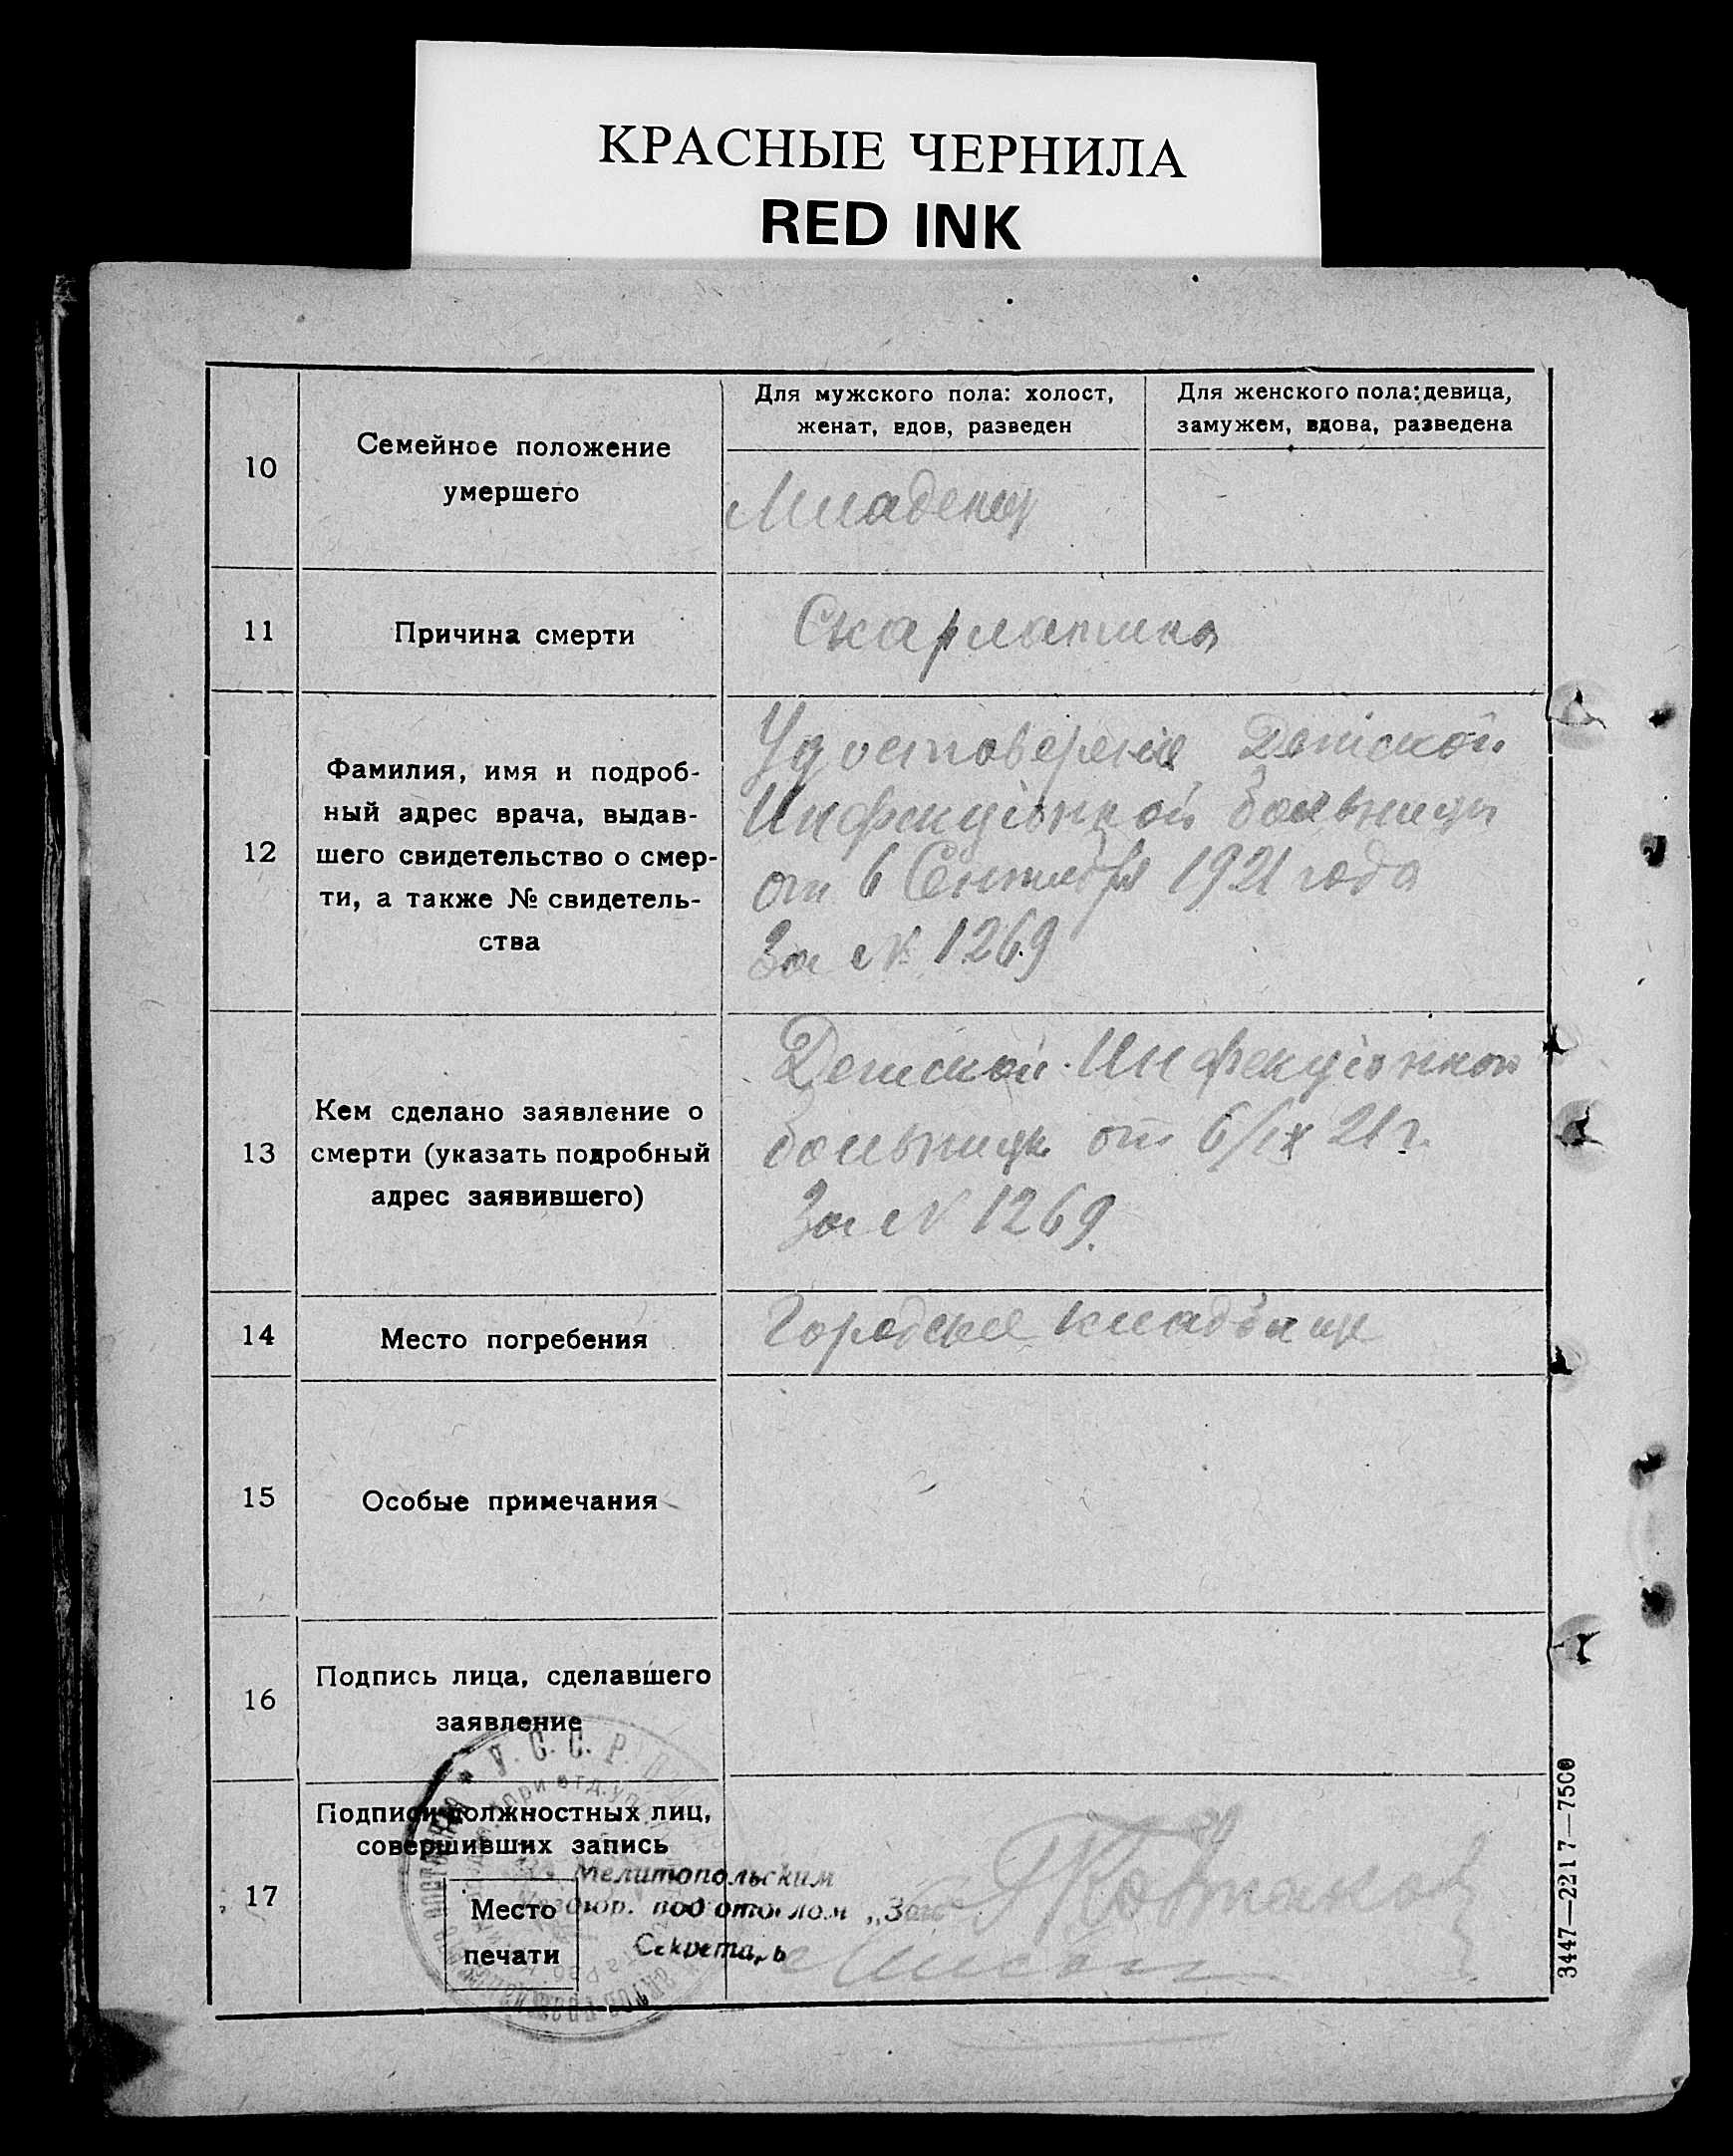 КРАСНЫЕ ЧЕРНИЛА
RED INK
10
Семейное положение
умершего
Для мужского пола: холост,
женат, вдов, разведен
Для женского пола: девица,
замужем, вдова, разведена
Младенец
11
Причина смерти
Скарлатина
12
Фамилия, имя и подроб-
ный адрес врача, выдав-
шего свидетельство о смер-
ти, а также № свидетель-
ства
Удостоверение Детской
Инфекціонной больницы
от 6 Сентября 1921 года
За № 1269
13
Кем сделано заявление о
смерти (указать подробный
адрес заявившего)
Детской Инфекціонной
больницы от 6/IX 21 г.
За № 1269.
14
Место погребения
Городское кладбище
15
Особые примечания
16
Подпись лица, сделавшего
заявление
17
Подписи должностных лиц,
совершивших запись
Место
печати
У.С.С.Р.
при отд. упр.
Мелитопольским
под отделом
Секретарь
3447—2217—7500